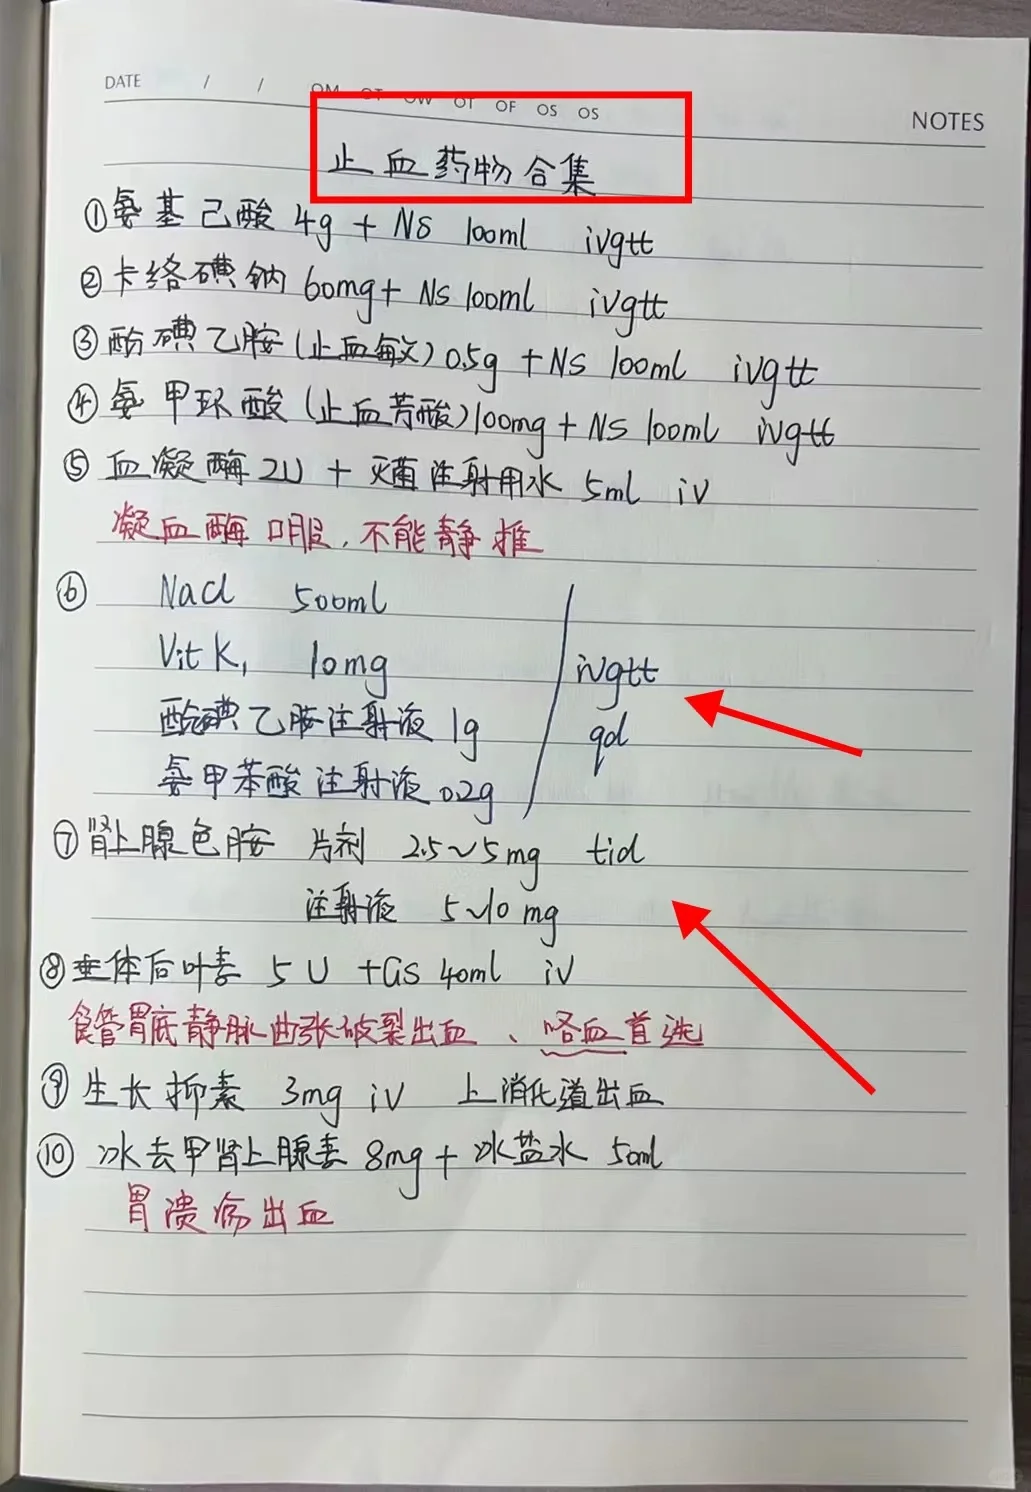 DATE / / OM OT OW OT OF OS OS
NOTES
止血药物合集
①氨基己酸 4g + NS 100ml ivgtt
②卡络磺钠 60mg + NS 100ml ivgtt
③酚磺乙胺(止血敏) 0.5g + NS 100ml ivgtt
④氨甲环酸(止血芳酸) 100mg + NS 100ml ivgtt
⑤血凝酶 2U + 灭菌注射用水 5ml iv
凝血酶口服,不能静推
⑥ Nacl 500ml
Vit K₁ 10mg ivgtt
酚磺乙胺注射液 1g qd
氨甲苯酸注射液 0.2g
⑦肾上腺色胺 片剂 2.5~5mg tid
注射液 5~10mg
⑧垂体后叶素 5U + GS 40ml iv
食管胃底静脉曲张破裂出血、咯血首选
⑨生长抑素 3mg iv 上消化道出血
⑩冰去甲肾上腺素 8mg + 冰盐水 50ml
胃溃疡出血